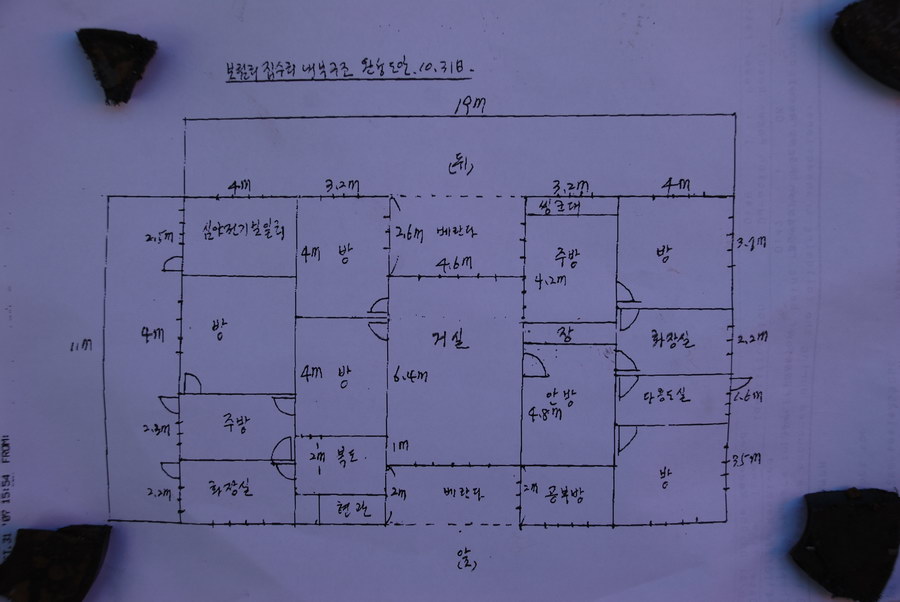 보림리 집수리 내부구조 완성도면. 10.31日.
19M
(뒤)
4M 3.2M 3.2M 4M
씽크대
심야전기보일러
2.5M
4M 방
2.6M 베란다
4.6M
주방
4.2M
방
11M
4M 방
4M 방
거실
6.4M
장
화장실 2.2M
안방
4.8M
다용도실 1.6M
2.3M 주방
2M 복도
1M
3.5M
방
2.2M 화장실
현관
2M 베란다
2M 공부방
(앞)
31 '07 15:54 FROM: